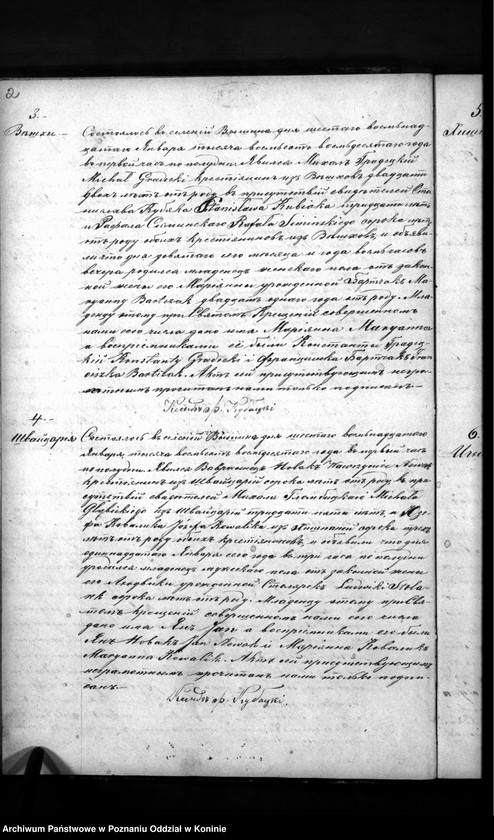 2
3.
Вѣнхи
Состоялось въ селеніи Вышина дня шестаго восьмнад
цатаго Января тысяча восемьсотъ восьмдесятаго года
въ первой часъ по полудни. Явился Михалъ Градецкій
Michał Gradecki крестьянинъ изъ двадцати
двухъ лѣтъ отъ роду въ присутствіи свидѣтелей Ста
нислава Кубяка Stanisława Kubiaka тридцати лѣтъ
и Рафала Rafała сорока
отъ роду обоихъ крестьяниновъ изъ и объяви
ли что дня девятаго сего мѣсяца и года
вечера родился младенецъ женскаго пола отъ закон
ной жены его Маріянны урожденной Бартчакъ Ma
ryanny Bartczak двадцати одного года отъ роду. Мла
денцу этому при Святомъ Крещеніи совершенномъ
нами сего числа дано имя Маріянна Maryanna
а воспріемниками ея были Константы Градец
кій Konstanty Gradecki и Францишка Бартчакъ Fran
ciszka Bartczak. Актъ сей присутствующимъ негра
мотнымъ прочитанъ нами только подписанъ.
Ксендзъ Ф. Кубацкі
4.
Швайцарія
Состоялось въ селеніи Вышина дня шестаго восьмнадцатаго
Января тысяча восемьсотъ восьмдесятаго года въ первой часъ
по полудни. Явился Вавржинецъ Новакъ Wawrzyniec Nowak
крестьянинъ изъ Швайцаріи сорока лѣтъ отъ роду въ при
сутствіи свидѣтелей Михала Michała
изъ Швайцаріи тридцати пяти лѣтъ, и Юзе
фа Ковалика Józefa Kowalika изъ сорока трехъ
лѣтъ отъ роду обоихъ крестьяновъ, и объявили что дня
одиннадцатаго Января сего года въ три часа по полудни
родился младенецъ мужескаго пола отъ законной жены
его Людвики урожденной Столарекъ Ludwiki Stola
rek сорока лѣтъ отъ роду. Младенцу этому при Свя
томъ крещеніи совершенномъ нами сего числа
дано имя Янъ Jan а воспріемниками его были
Янъ Новакъ Jan Nowak и Маріянна Коваликъ
Maryanna Kowalik. Актъ сей присутствующимъ
неграмотнымъ прочитанъ нами только подпи
санъ.
Ксендзъ Ф. Кубацкі.
5.
6.
Archiwum Państwowe w Poznaniu Oddział w Koninie